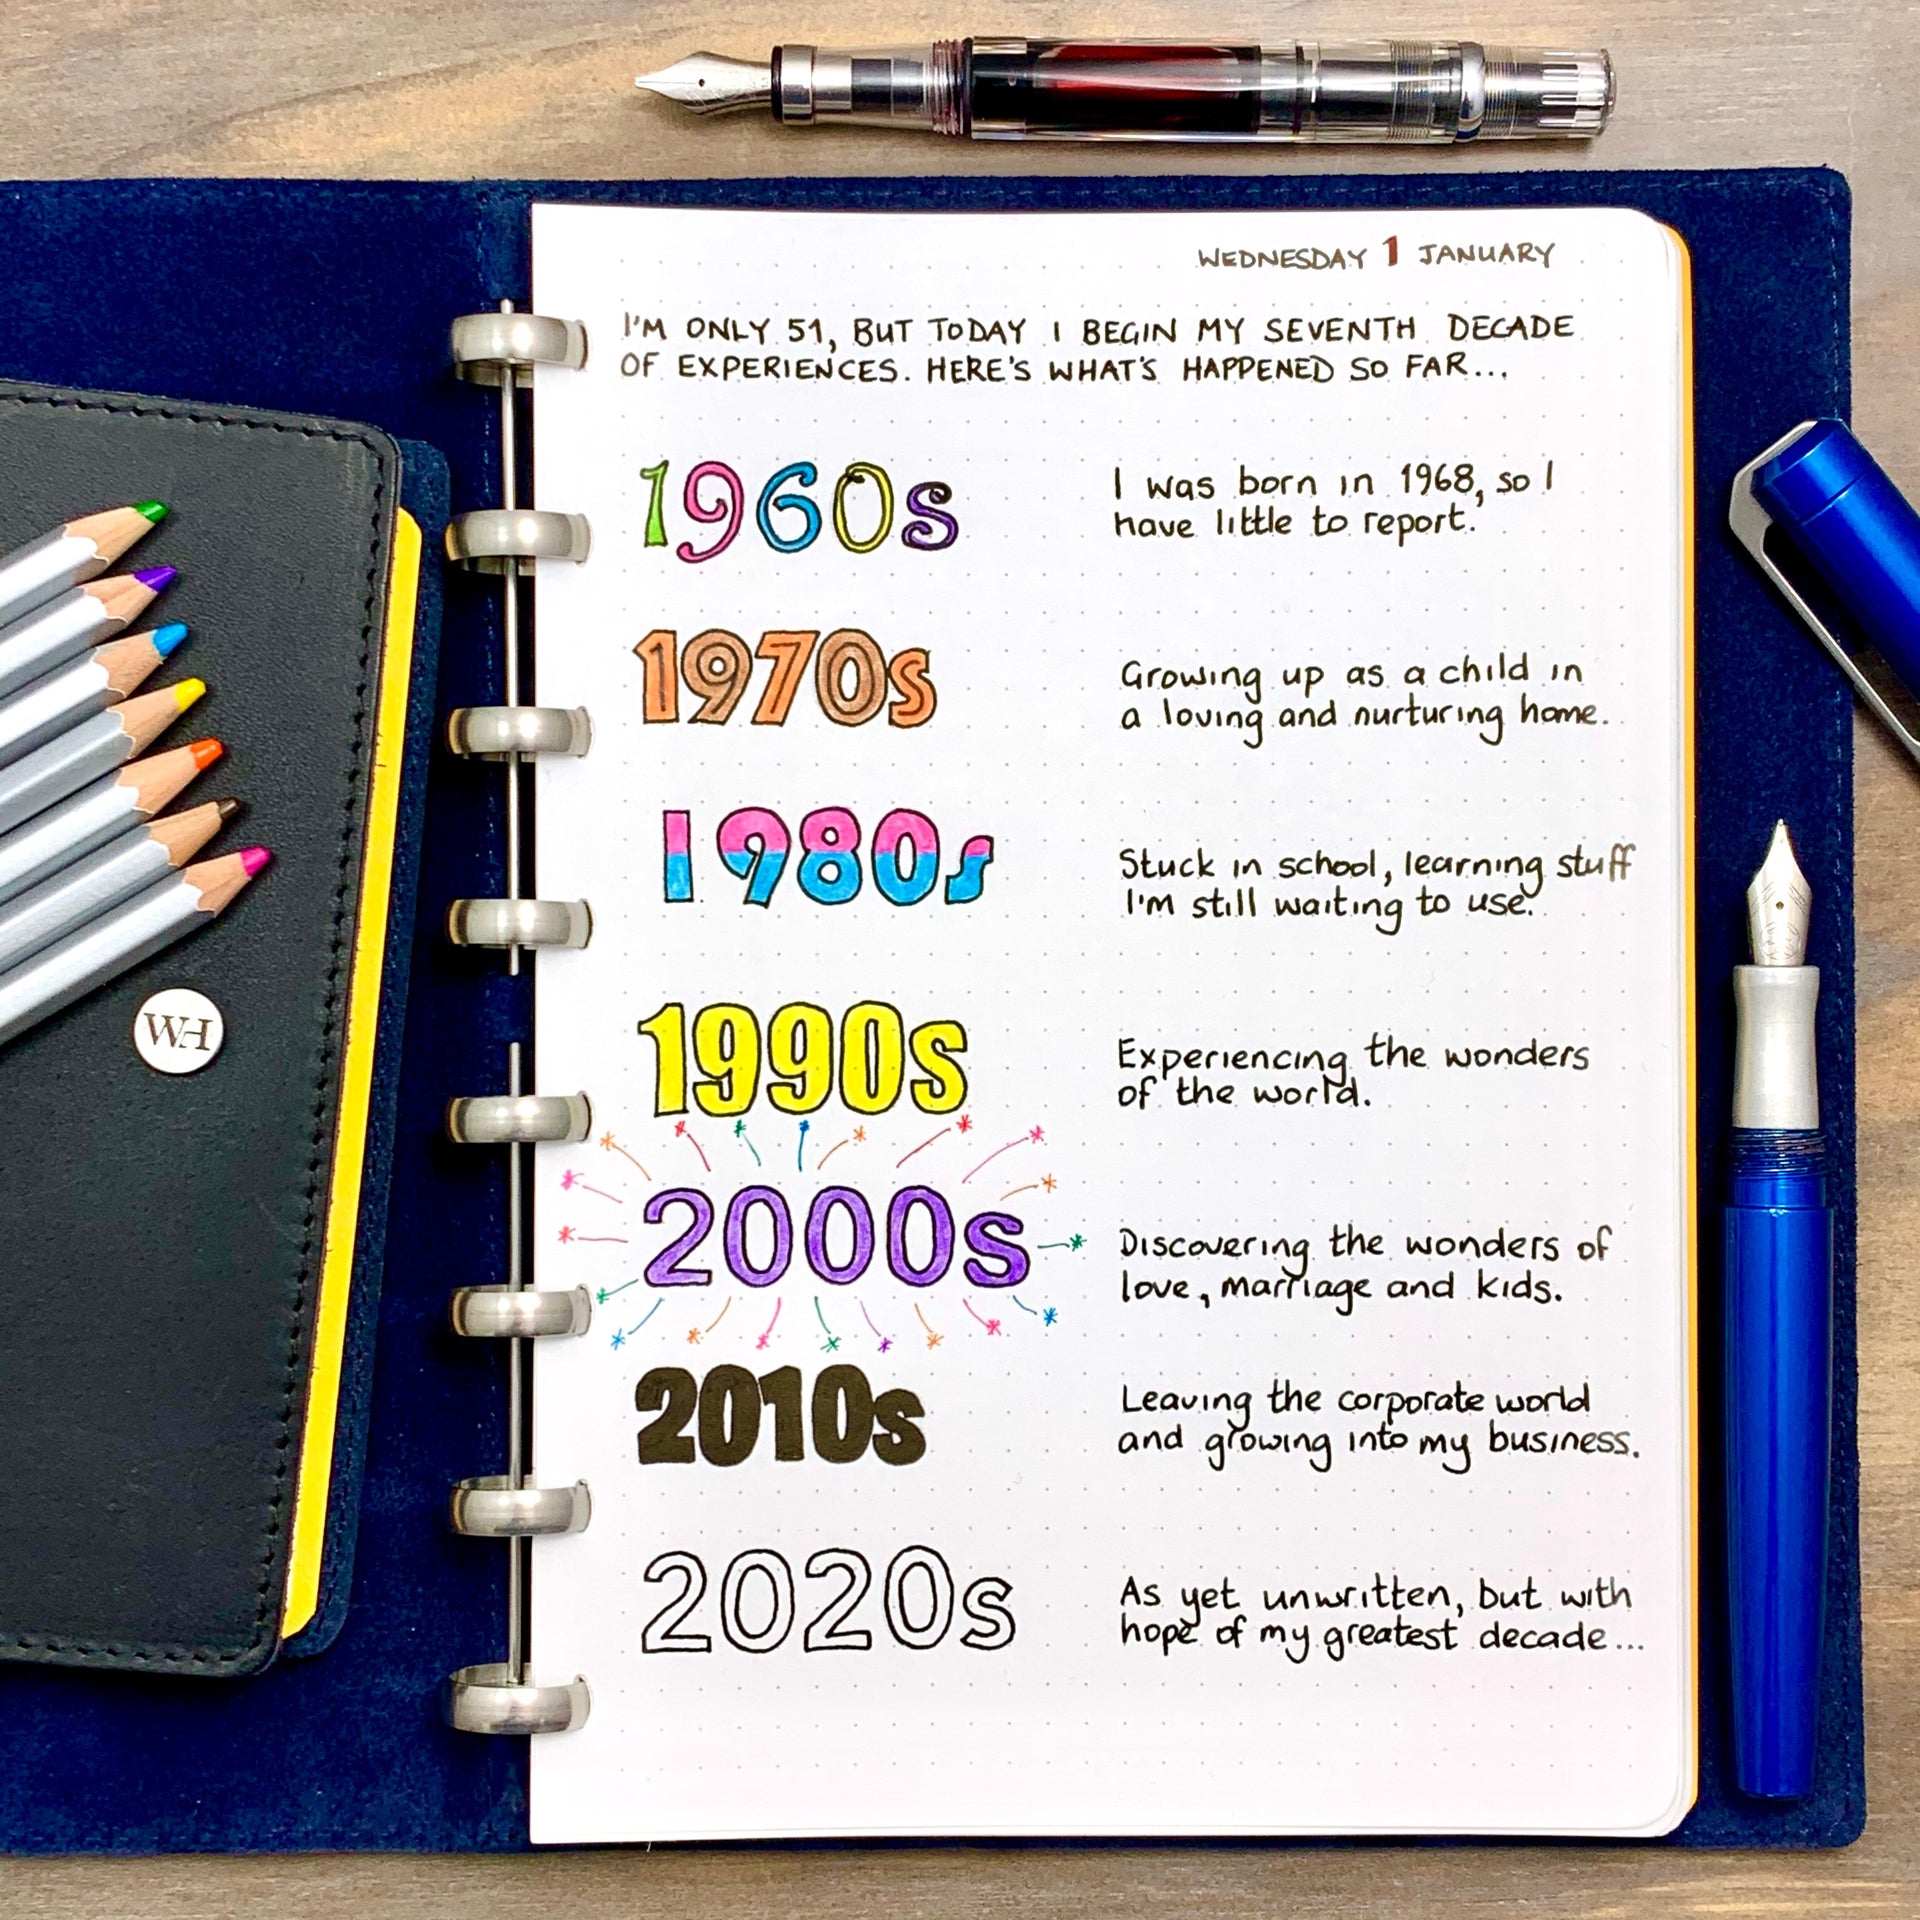 WEDNESDAY 1 JANUARY
I'M ONLY 51, BUT TODAY I BEGIN MY SEVENTH DECADE
OF EXPERIENCES. HERE'S WHAT'S HAPPENED SO FAR...
1960s
I was born in 1968, so I
have little to report.
1970s
Growing up as a child in
a loving and nurturing home.
1980s
Stuck in school, learning stuff
I'm still waiting to use.
1990s
Experiencing the wonders
of the world.
2000s
Discovering the wonders of
love, marriage and kids.
2010s
Leaving the corporate world
and growing into my business.
2020s
As yet unwritten, but with
hope of my greatest decade...
WH